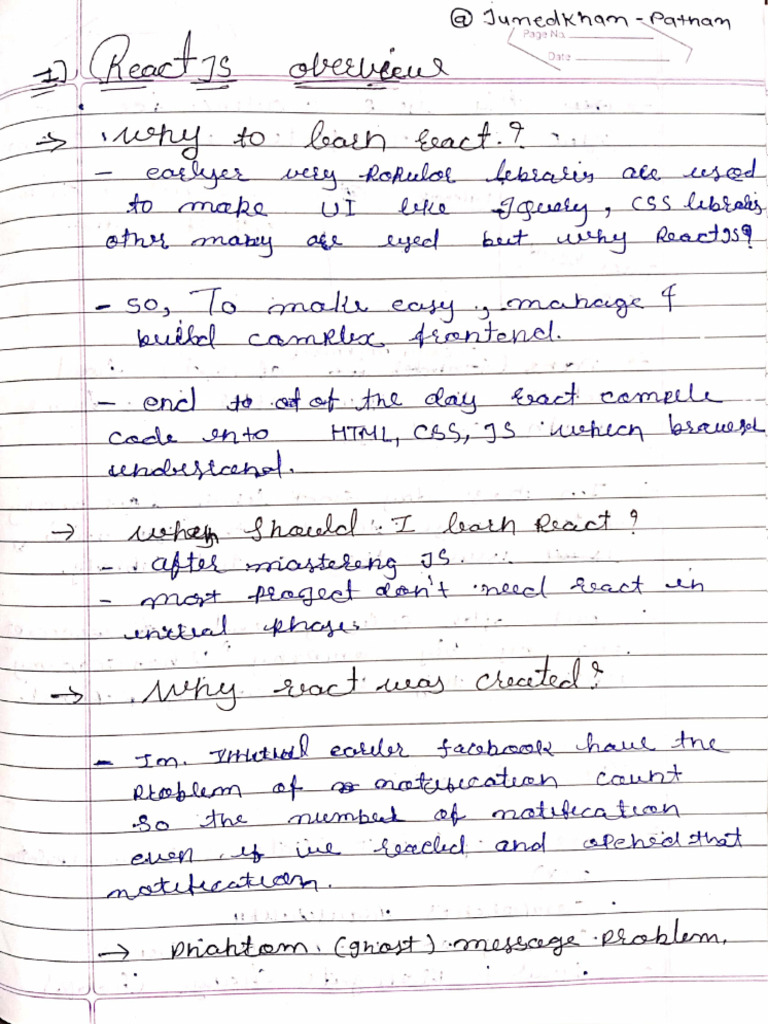 @ Junedkhan-Pathan
Page No.
Date
1) React JS overview
→ Why to learn react?
- earlyer very Popular libraris are used
to make UI like Jquery, CSS libraris
other many are eyed but why ReactJS?
- so, To make easy, manage &
build complex frontend.
- end to of of the day react compile
code into HTML, CSS, JS which browser
understand.
→ when should I learn React?
- after mastering JS.
- most project don't need react in
initial phase.
→ Why react was created?
- In. earlier facebook have the
Problem of notification count
so the number of notification
even if we readed and opened that
notification.
→ Phantom (ghost) message problem.